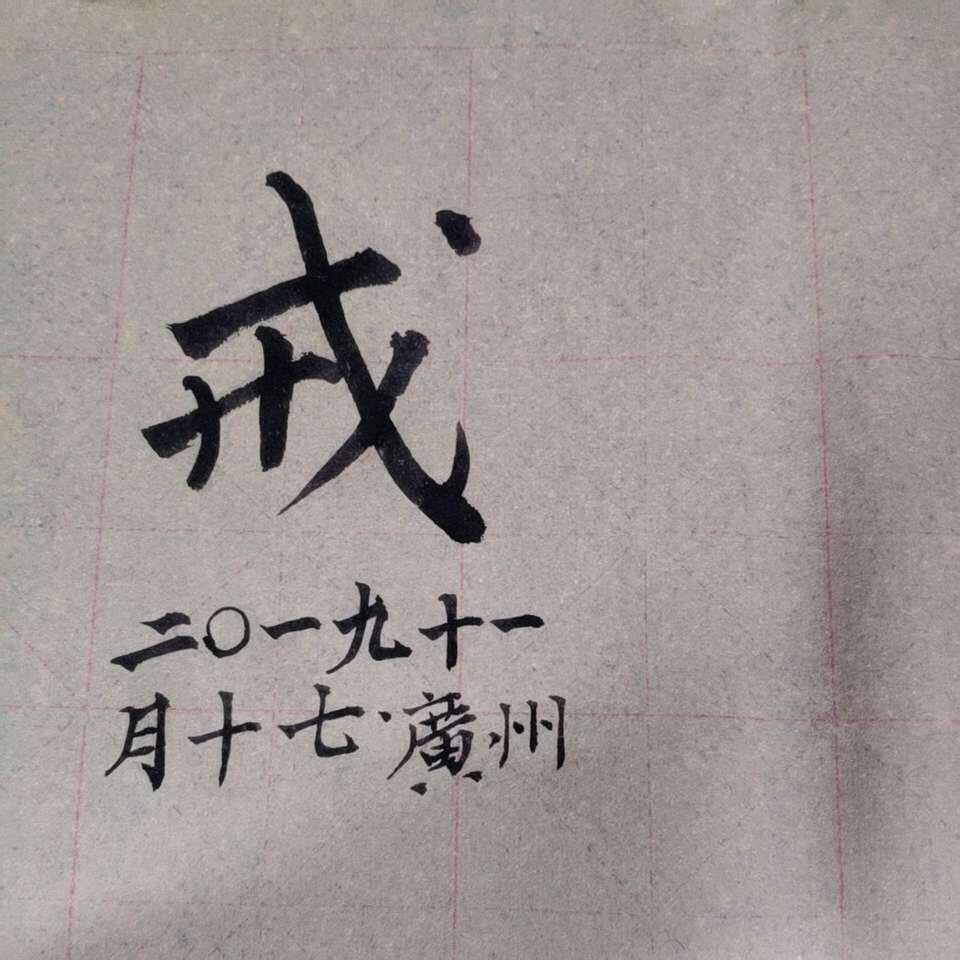 戒
二〇一九十一
月十七·廣州